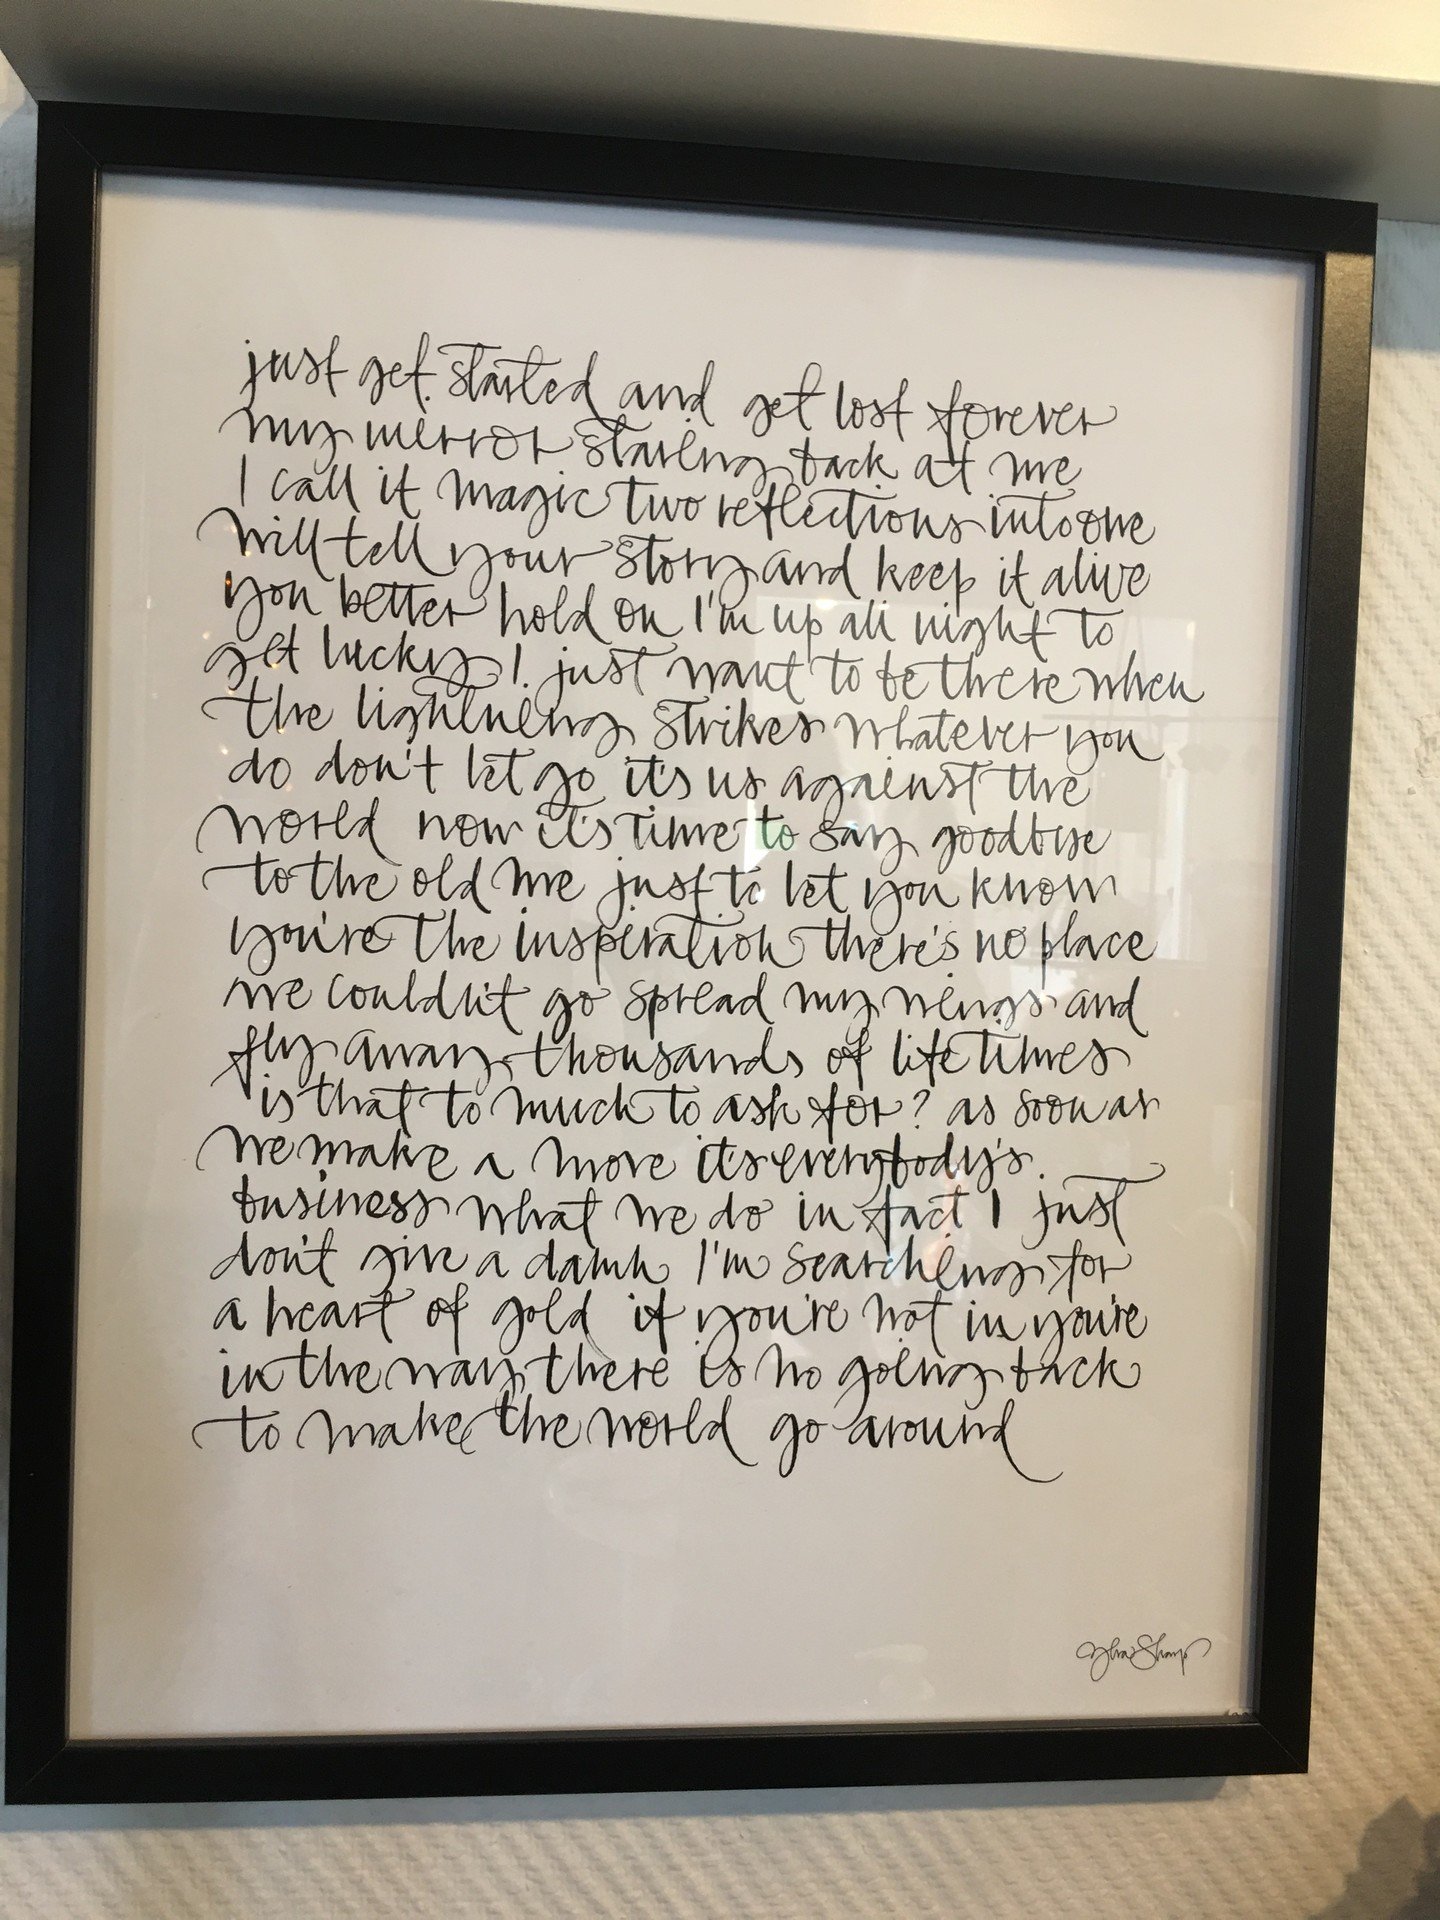 just get started and get lost forever
my mirror staring back at me
I call it magic two reflections into one
will tell your story and keep it alive
you better hold on I'm up all night to
get lucky I just want to be there when
the lightning strikes whatever you
do don't let go it's us against the
world now it's time to say goodbye
to the old me just to let you know
you're the inspiration there's no place
we couldn't go spread my wings and
fly away thousands of life times
is that to much to ask for? as soon as
we make a move it's everybody's
business what we do in fact I just
don't give a damn I'm searching for
a heart of gold if you're not in you're
in the way there is no going back
to make the world go around
Ylva Skarp